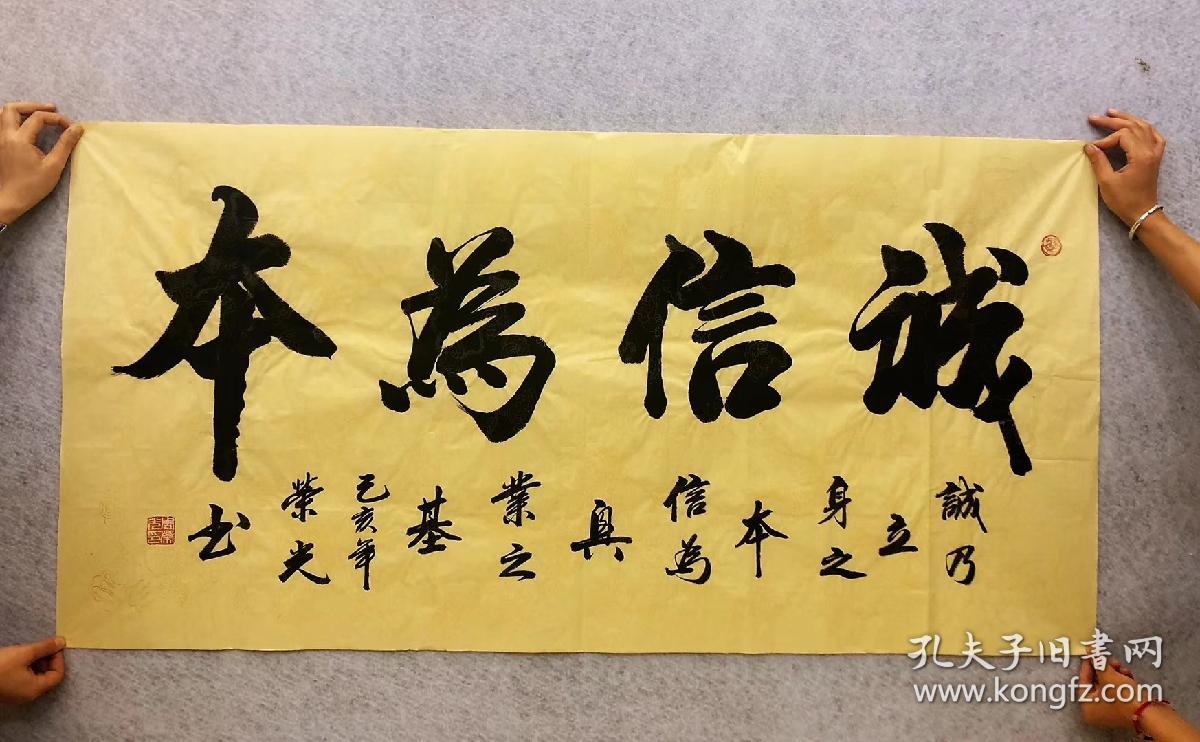 誠信為本
誠乃
立
身之
本
信為
興
業之
基
己亥年
榮光
书
孔夫子旧書网
www.kongfz.com